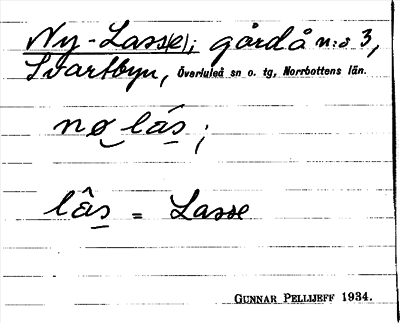 Ny-Lass(e); gård å n:o 3,
Svartbyn, Överluleå sn o. tg, Norrbottens län.
nø̬ lás̠;
lâs̠ = Lasse
GUNNAR PELLIJEFF 1934.